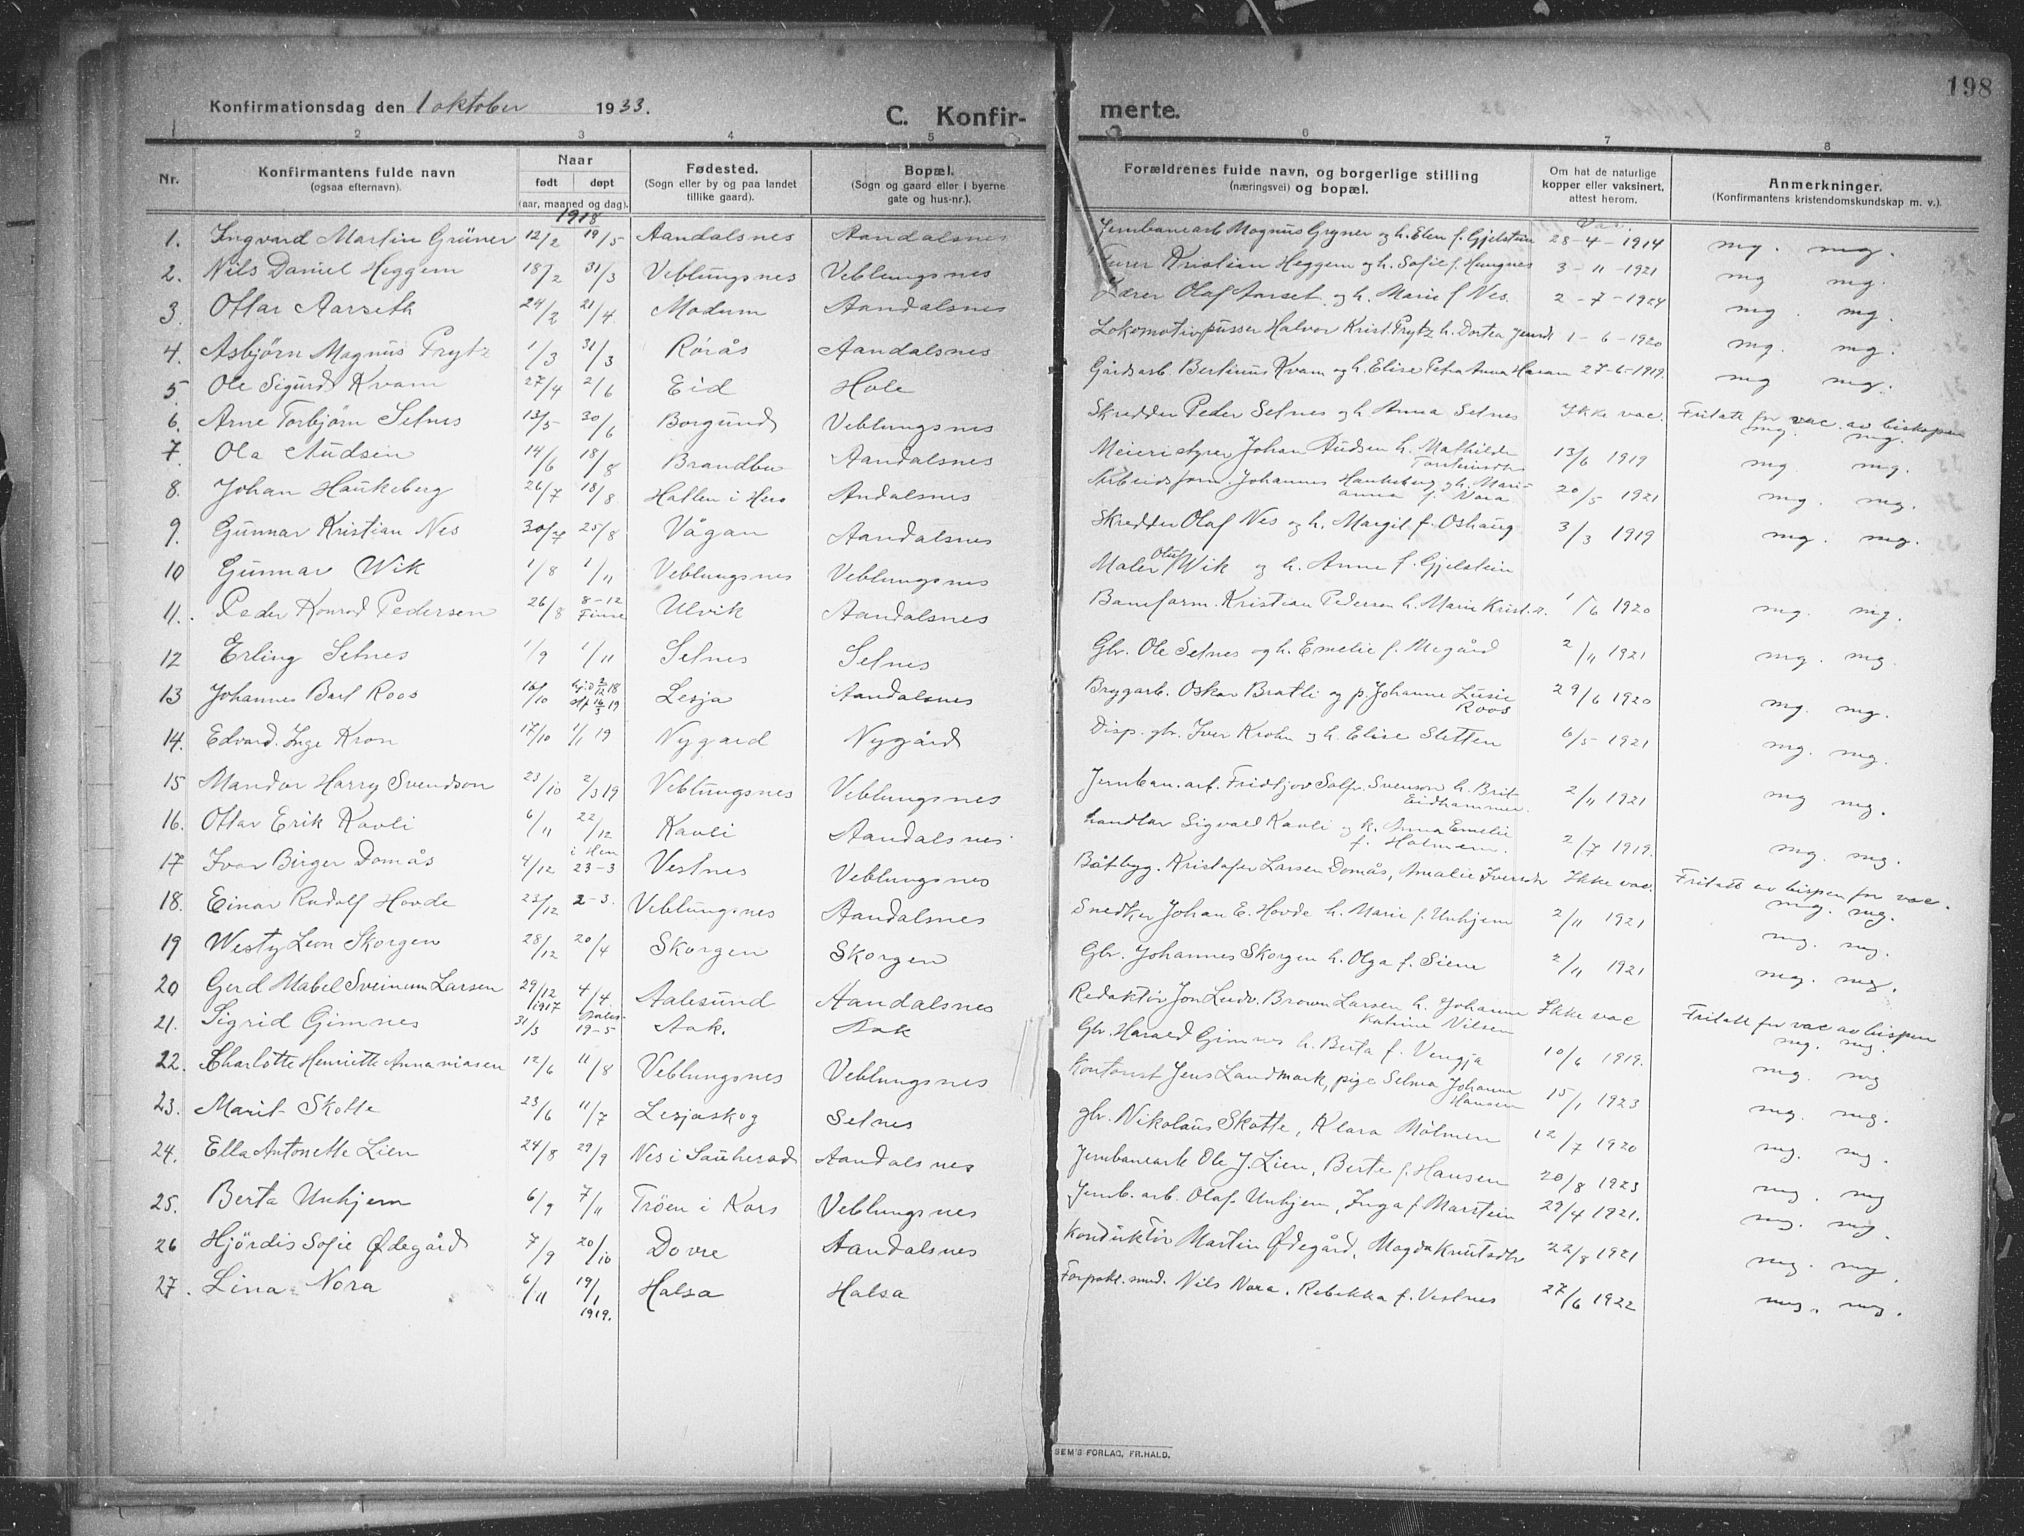 198
Konfirmationsdag den 1 oktober 1933.
C. Konfir- merte.
1 2 3 4 5 6 7 8
Nr. Konfirmantens fulde navn (ogsaa efternavn). Naar født døpt (aar, maaned og dag). Fødested. (Sogn eller by og paa landet tillike gaard). Bopæl. (Sogn og gaard eller i byerne gate og hus-nr.). Forældrenes fulde navn, og borgerlige stilling (næringsvei) og bopæl. Om hat de naturlige kopper eller vaksinert, attest herom. Anmerkninger. (Konfirmantens kristendomskundskap m. v.).
1918 Vac.
1. Ingvard Martin Grüner 12/2 19/5 Aandalsnes Aandalsnes Jernbanearb Magnus Gryner og h. Elen f. Gjelstein 28-4-1914 mg. mg.
2. Nils Daniel Heggem 18/2 31/3 Veblungsnes Veblungsnes Furer Kristian Heggem og h. Sofie f. Hungnes 3-11-1921 mg mg.
3. Ottar Aarseth 24/2 21/4 Modum Aandalsnes Lærer Olaf Aarset og h. Marie f Nes. 2-7-1924 mg. mg.
4. Asbjörn Magnus Prytz 1/3 31/3 Rørås Aandalsnes Lokomotivpusser Halvor Krist. Prytz h. Dortea Jensdt 1-6-1920 mg. mg.
5. Ole Sigurd Kvam 27/4 2/6 Eid Hole Gårdsarb. Bertinus Kvam og h. Elise Petra Anna Haram 27-6-1919. mg mg.
6. Arne Torbjørn Setnes 13/5 30/6 Borgund Veblungsnes Skredder Peder Setnes og h Anna Setnes Ikke vac. Fritatt for vac. av biskopen mg. mg.
7. Ola Audsen 14/6 18/8 Brandbu Aandalsnes Meieristyrer Johan Audsen h. Mathilde Torsteinsdtr 13/6 1919 mg. mg.
8. Johan Haukeberg 26/7 18/8. Hatlen i Herø Andalsnes Arbeidsform. Johannes Haukeberg og h. Marianna f. Nora 20/5 1921 mg. mg.
9. Gunnar Kristian Nes 30/7 25/8 Vågan Aandalsnes Skredder Olaf Nes og h. Margit f. Oshaug 3/3 1919 mg. mg.
10 Gunnar Wik 1/8 1/11 Veblungsnes Veblungsnes Maler Oluf Wik og h. Anne f. Gjelstein
11. Peder Konrad Pedersen 26/8 8-12 Finse Ulvik Aandalsnes Baneform. Kristian Pedersen h. Marie Krist. 1/6 1920 mg. mg.
12 Erling Setnes 1/9 1/11 Setnes Setnes Gbr. Ole Setnes og h. Emelie f. Megård 2/11 1921 mg. mg.
13 Johannes Roos 16/10 2/12 18 16/3 19 Lesja Aandalsnes Brygarb. Oskar Bratli og p. Johanne Lusie Roos 29/6 1920 mg. mg.
14. Edvard Inge Kron 17/10 1/1 19 Nygard Nygård Disp. gbr. Iver Krohn og h. Elise Sletten 6/5-1921 mg. mg.
15 Mandor Harry Svendson 23/10 2/3 19 Veblungsnes Veblungsnes Jernban. arb. Fridtjov Svenson h. Brit Eidhammer. 2/11 1921 mg mg.
16. Ottar Erik Kavli 6/11 22/12 Kavli Aandalsnes handlar Sigvald Kavli og h. Anna Emelie f. Holmem. 2/7 1919. mg. mg.
17 Ivar Birger Domås 4/12 i Hen 23-3 Vestnes Veblungsnes Båtbyg. Kristofer Larsen Domås, Amalie Iversdtr Ikke vac. Fritatt av bispen for vac. mg. mg.
18. Einar Rudolf Hovde 23/12 2-3. Veblungsnes Aandalsnes Snedker Johan E. Hovde h. Marie f. Unhjem 2/11 1921 mg. mg.
19 Westy Leon Skorgen 28/12 20/4 Skorgen Skorgen Gbr. Johannes Skorgen h. Olga f. Siene 2/11 1921 mg. mg.
20 Gerd Mabel Sveinum Larsen 29/12 1917 4/4. Aalesund Aandalsnes Redaktør Jon Ludv. Brown Larsen h. Johanne Katrine Nilsen Ikke vac Fritatt for vac av bispen mg. mg.
21. Sigrid Gimnes 31/3 19-5 Aak. Aak Gbr. Harald Gimnes h. Berta f. Vengja 10/6 1919. mg. mg
22. Charlotte Henriette Annaniasen 12/6 11/8 Veblungsnes Veblungsnes Kontorist Jens Landmark, pige Selma Johanne Hansen 15/1 1923 mg. mg.
23. Marit Skotte 23/6 11/7 Lesjaskog Setnes gbr. Nikolaus Skotte, Klara Mølmen 12/7 1920 mg. mg.
24. Ella Antonette Lien 24/8 29/9 Nes i Sauherad Aandalsnes Jernbanearb Ole J. Lien, Berte f. Hansen 20/8 1923 mg. mg
25. Berta Unhjem 6/9 7/11 Trøen i Kors Veblungsnes Jernb. arb. Olaf Unhjem, Inga f Marstein 29/4 1921. mg. mg.
26 Hjördis Sofie Ødegård 7/9 20/10 Dovre Aandalsnes Konduktør Martin Ødegård, Magda Knutsdtr 22/8 1921 mg. mg.
27. Lina Nora 6/11 19/1 1919. Halsa Halsa Forpakt. Nils Nora, Rebekka f. Vestnes 27/6 1922 mg. mg.
SEM'S FORLAG, FR. HALD.